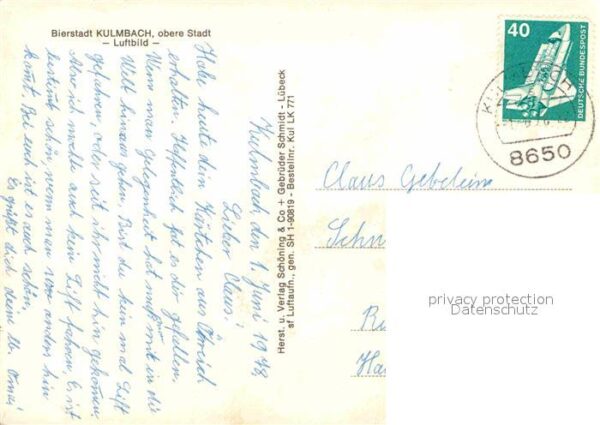 Bierstadt KULMBACH, obere Stadt
– Luftbild –
Kulmbach, den 1. Juni 1978
Lieber Claus,
Habe heute dein Kärtchen aus Östreich
erhalten. Hoffentlich hat es dir gefallen.
Wenn man Gelegenheit hat muß man in die
Welt hinaus gehen. Bist du kein mal Lift
gefahren, oder seit ihr nicht hin gekommen.
Aber ich wollte auch kein Lift fahren. Es ist
bestimt schön wenn man wo anders hin
kommt. Bei euch ist es auch schön.
Es grüßt dich deine lb. Oma
Herst. u. Verlag Schöning & Co + Gebrüder Schmidt - Lübeck
sf Luftaufn., gen. SH 1-90819 - Bestellnr. Kul LK 771
40
DEUTSCHE BUNDESPOST
8650
Claus Gebelein
Schn
Ha
privacy protection
Datenschutz